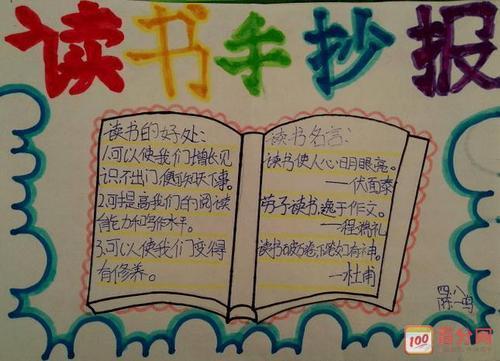 读书手抄报
读书的好处:
1.可以使我们增长见
识不出门,便知天下事。
2.可提高我们的阅读
能力和写作水平。
3.可以使我们变得
有修养。
读书名言:
读书使人心明眼亮。
——伏尔泰
劳于读书,逸于作文。
——程端礼
读书破万卷,下笔如有神。
——杜甫
四、八
陈一鸣
100 百分网